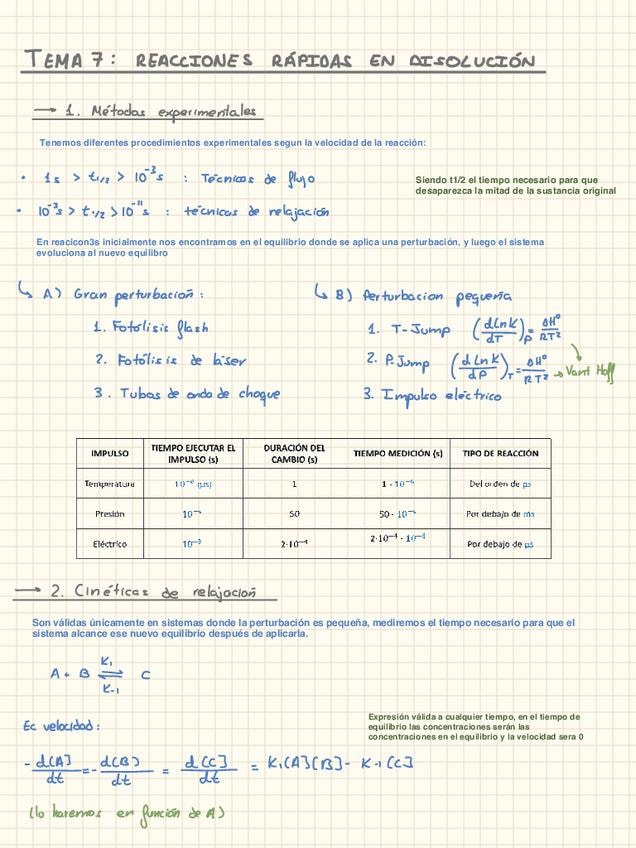 TEMA 7: REACCIONES RÁPIDAS EN DISOLUCIÓN
→ 1. Métodos experimentales
Tenemos diferentes procedimientos experimentales segun la velocidad de la reacción:
• 1s > t1/2 > 10⁻³s : Técnicas de flujo
Siendo t1/2 el tiempo necesario para que
desaparezca la mitad de la sustancia original
• 10⁻³s > t1/2 > 10⁻¹¹s : técnicas de relajación
En reacicon3s inicialmente nos encontramos en el equilibrio donde se aplica una perturbación, y luego el sistema
evoluciona al nuevo equilibro
↳ A) Gran perturbación:
1. Fotólisis flash
2. Fotólisis de láser
3. Tubos de onda de choque
↳ B) Perturbacion pequeña
1. T-Jump (dLnK/dT)P = ΔH⁰/RT²
2. P.Jump (dLnK/dP)T = ΔH⁰/RT² → Vant Hoff
3. Impulso eléctrico
IMPULSO TIEMPO EJECUTAR EL IMPULSO (s) DURACIÓN DEL CAMBIO (s) TIEMPO MEDICIÓN (s) TIPO DE REACCIÓN
Temperatura (μs) 1 Del orden de μs
Presión 50 Por debajo de ms
Eléctrico Por debajo de μs
→ 2. Cinéticas de relajación
Son válidas únicamente en sistemas donde la perturbación es pequeña, mediremos el tiempo necesario para que el
sistema alcance ese nuevo equilibrio después de aplicarla.
K1
A + B ⇌ C
K-1
Ec velocidad:
Expresión válida a cualquier tiempo, en el tiempo de
equilibrio las concentraciones serán las
concentraciones en el equilibrio y la velocidad sera 0
- d[A]/dt = - d[B]/dt = d[C]/dt = K1[A][B] - K-1[C]
(lo haremos en función de A)